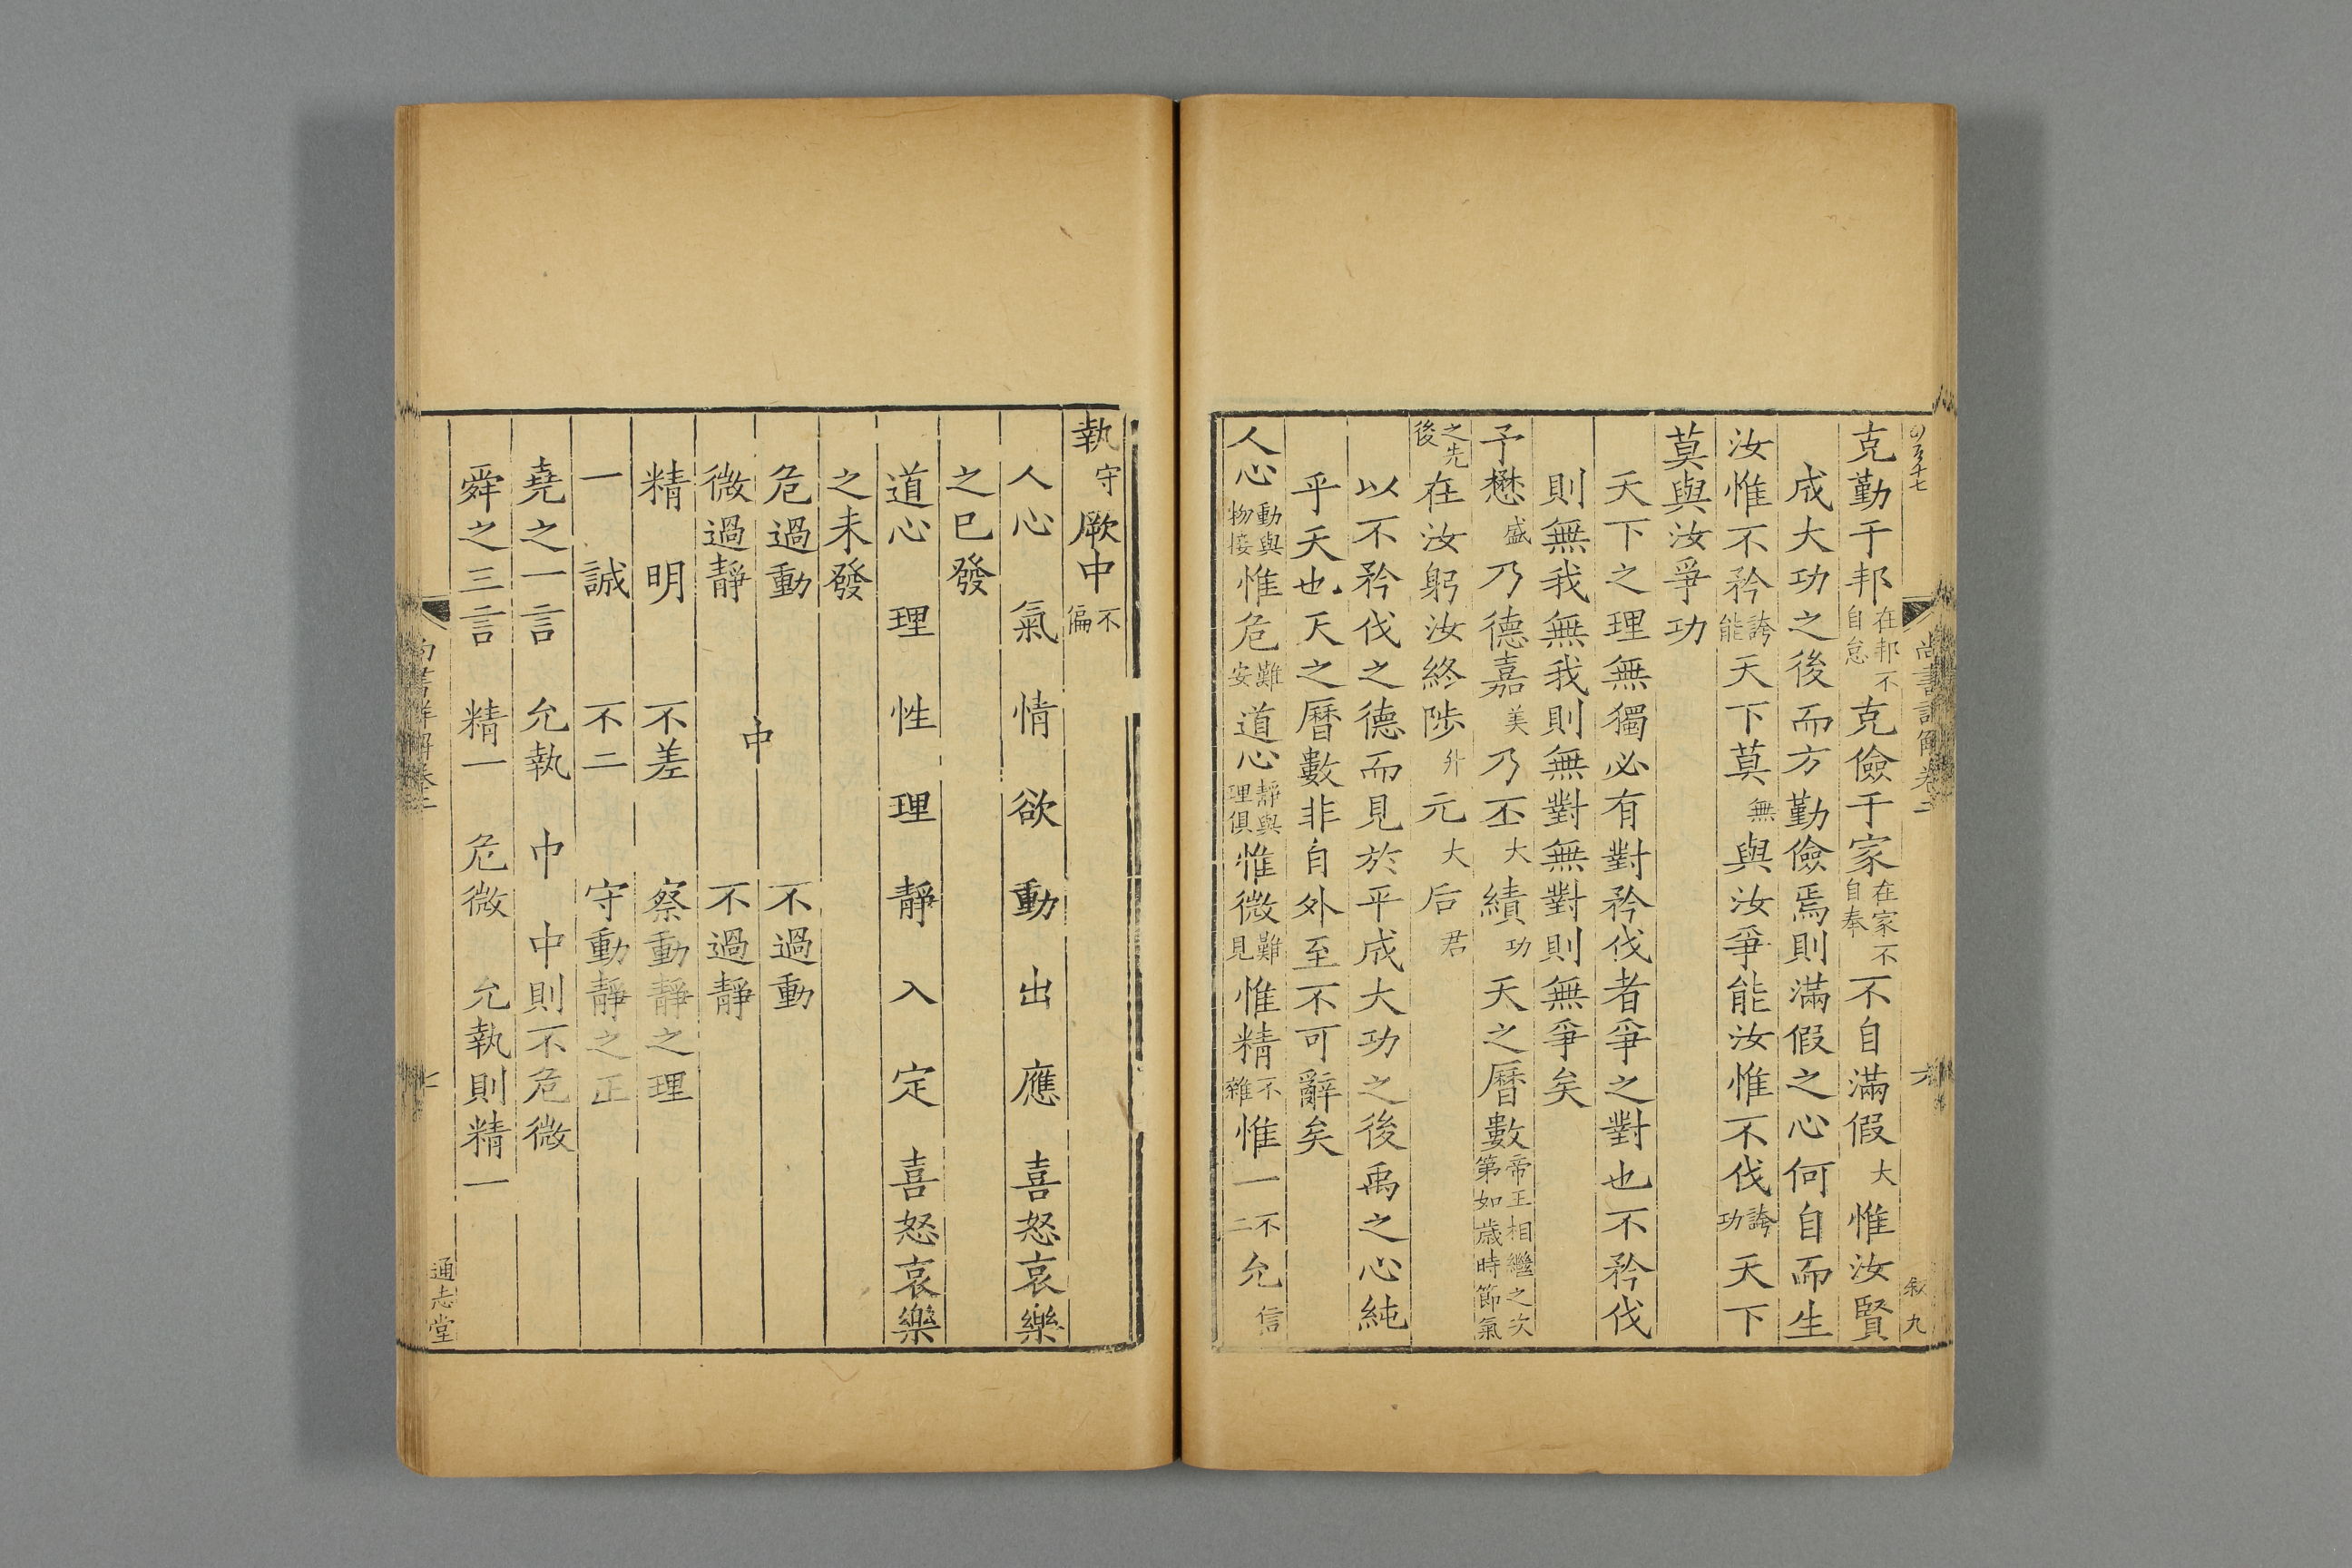 克勤于邦在邦不自怠克儉于家在家不自奉不自滿假大惟汝賢
成大功之後而方勤儉焉則滿假之心何自而生
汝惟不矜誇能天下莫無與汝爭能汝惟不伐誇功天下
莫與汝爭功
天下之理無獨必有對矜伐者爭之對也不矜伐
則無我無我則無對無對則無爭矣
予懋盛乃德嘉美乃丕大績功天之曆數帝王相繼之次第如歲時節氣
之先後在汝躬汝終陟升元大后君
以不矜伐之德而見於平成大功之後禹之心純
乎天也天之曆數非自外至不可辭矣
人心動與物接惟危難安道心靜與理俱惟微難見惟精不雜惟一不二允信
尚書詳解卷二
六
九
執守厥中不偏
人心 氣 情 欲 動 出 應 喜怒哀樂
之已發
道心 理 性 理 靜 入 定 喜怒哀樂
之未發
危過動 不過動
中
微過靜 不過靜
精 明 不差 察動靜之理
一 誠 不二 守動靜之正
堯之一言 允執 中 中則不危微
舜之三言 精一 危微 允執則精一
尚書詳解卷二
七
通志堂